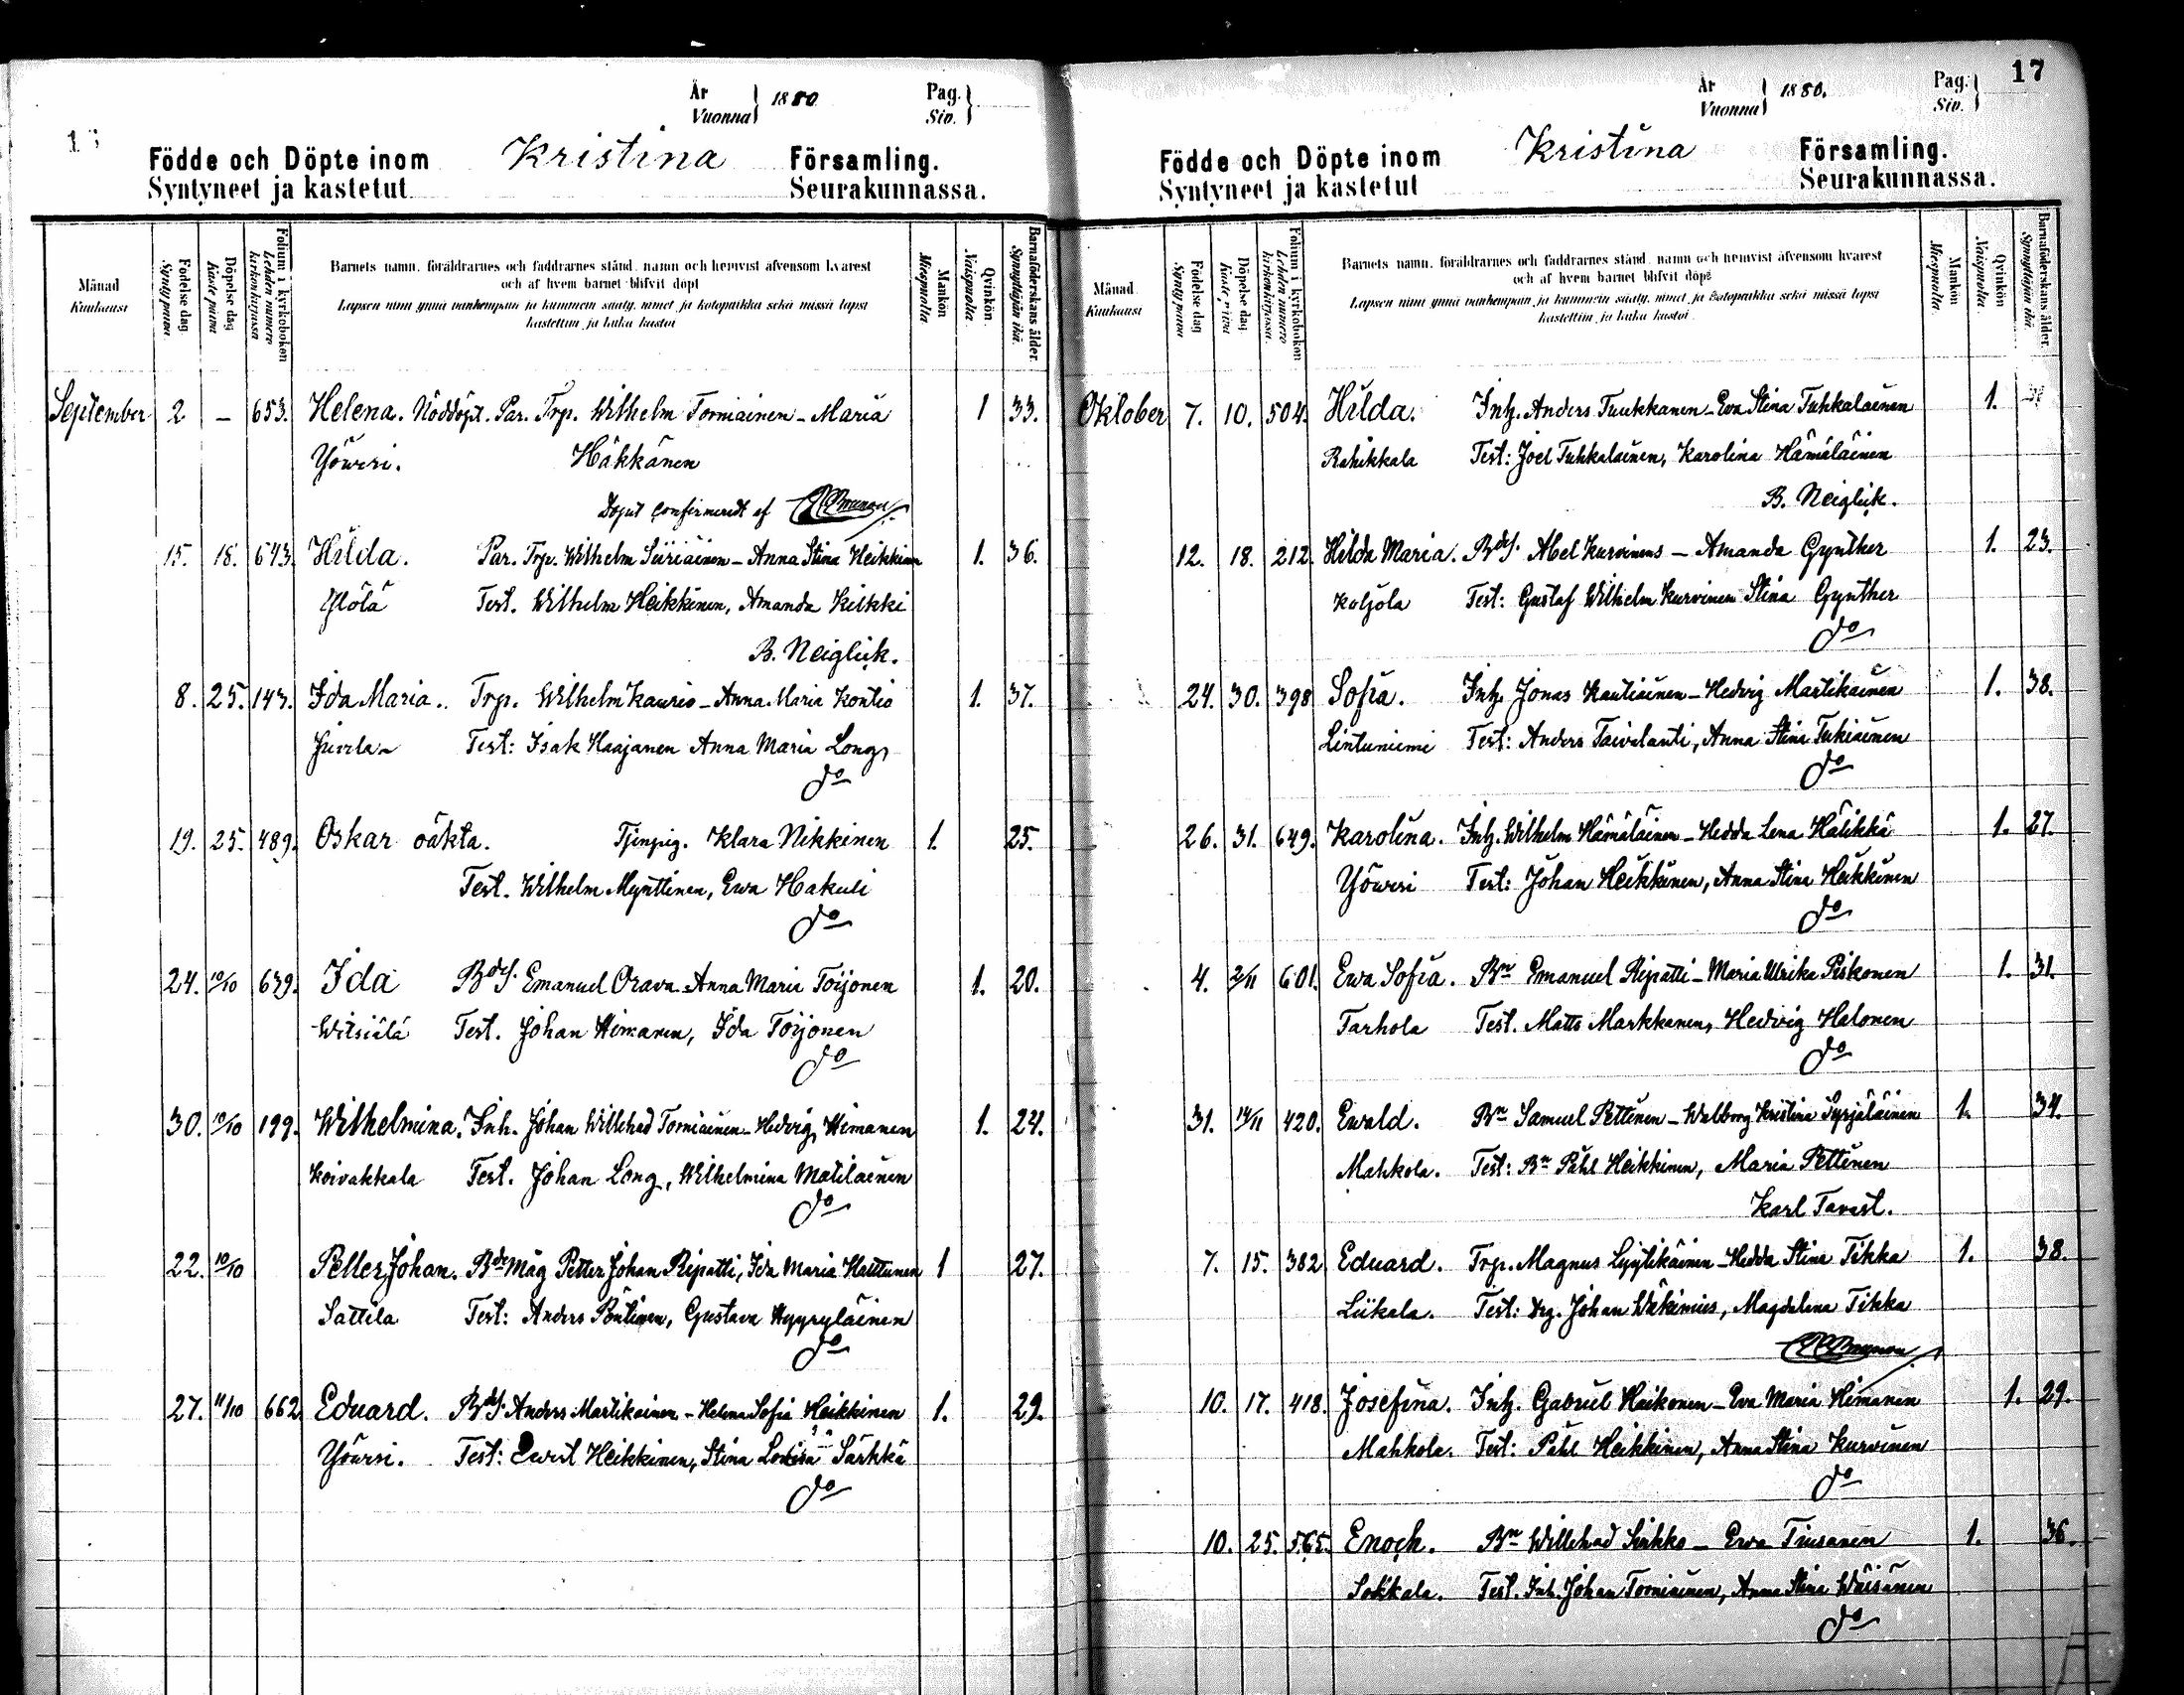 År
Vuonna } 1880
Pag.
Siv. }
Födde och Döpte inom Kristina Församling.
Syntyneet ja kastetut Seurakunnassa.
Månad
Kuukausi
Födelse dag
Syntypäivä
Döpelse dag
Kastepäivä
Folium i kyrkoboken
Lehden numero kirkonkirjassa
Barnets namn, föräldrarnes och faddrarnes stånd, namn och hemvist äfvensom hvarest
och af hvem barnet blifvit döpt
Lapsen nimi ynnä vanhempain ja kummein sääty, nimet ja kotopaikka sekä missä lapsi
kastettiin ja kuka kastoi
Mankön
Miespuolta
Qvinkön
Naispuolta
Barnaföderskans ålder
Synnyttäjän ikä
September 2 — 653. Helena. Nöddöpt. Par. Trp. Wilhelm Torniainen - Maria 1 33.
Yöveri. Häkkänen
Dopet confirmeradt af
15. 18. 643. Hilda. Par. Trp. Wilhelm Siiriäinen - Anna Stina Heikkinen 1. 36.
Ylölä Test. Wilhelm Heikkinen, Amanda Kilkki
B. Neiglick.
8. 25. 143. Ida Maria. Trp. Wilhelm Kaurio - Anna Maria Kontio 1. 37.
Test: Isak Haajanen Anna Maria Long,
do
19. 25. 489. Oskar oäkta. Tjenpig. Klara Nikkinen 1. 25.
Test. Wilhelm Mynttinen, Ewa Hakuli
do
24. 10/10 639. Ida Bds. Emanuel Orava - Anna Maria Toijonen 1. 20.
Witsiälä Test. Johan Himanen, Ida Toijonen
do
30. 10/10 199. Wilhelmina. Inh. Johan Willehad Torniainen - Hedvig Himanen 1. 24.
Koivakkala Test. Johan Long, Wilhelmina Matilainen
do
22. 10/10 Petter Johan. Bdemåg Petter Johan Ripatti, Ida Maria Hauttunen 1 27.
Sattila Test: Anders Pöntinen, Gustava Hyyryläinen
do
27. 11/10 662 Eduard. Bds. Anders Martikainen - Helena Sofia Heikkinen 1. 29.
Yöveri. Test: Evert Heikkinen, Stina Lovisa Särkkä
do
17
År
Vuonna } 1880.
Pag.
Siv. }
Födde och Döpte inom Kristina Församling.
Syntyneet ja kastetut Seurakunnassa.
Månad
Kuukausi
Födelse dag
Syntypäivä
Döpelse dag
Kastepäivä
Folium i kyrkoboken
Lehden numero kirkonkirjassa.
Barnets namn, föräldrarnes och faddrarnes stånd, namn och hemvist äfvensom hvarest
och af hvem barnet blifvit döpt
Lapsen nimi ynnä vanhempain ja kummein sääty, nimet ja kotopaikka sekä missä lapsi
kastettiin ja kuka kastoi
Mankön
Miespuolta.
Qvinkön
Naispuolta.
Barnaföderskans ålder.
Synnyttäjän ikä.
Oktober 7. 10. 504. Hilda. Inh. Anders Tuukkanen - Eva Stina Tuhkalainen 1.
Rahikkala Test: Joel Tuhkalainen, Karolina Hämäläinen
B. Neiglick.
12. 18. 212. Hilda Maria. Bds. Abel Kurvinens - Amanda Gynther 1. 23.
Koljola Test: Gustaf Wilhelm Kurvinen Stina Gynther
do
24. 30. 398 Sofia. Inh. Jonas Kautiainen - Hedvig Martikainen 1. 38.
Lintuniemi Test: Anders Taivalanti, Anna Stina Tukiainen
do
26. 31. 649. Karolina. Inh. Wilhelm Hämäläinen - Hedda Lena Hälikkä 1. 27.
Yöveri Test: Johan Heikkinen, Anna Stina Heikkinen
do
4. 2/11 601. Ewa Sofia. Bn Emanuel Ripatti - Maria Ulrika Piskonen 1. 31.
Tarhola Test. Matts Markkanen, Hedvig Halonen
do
31. 14/11 420. Ewald. Bn Samuel Pettinen - Walborg Kristina Syrjäläinen 1. 34.
Mahkola. Test: Bn Påhl Heikkinen, Maria Pettinen
Karl Tavast.
7. 15. 382 Eduard. Trp. Magnus Lyytikäinen - Hedda Stina Tikka 1. 38.
Liikala. Test: Drg. Johan Wäkimies, Magdalena Tikka
10. 17. 418. Josefina. Inh. Gabriel Haikonen - Eva Maria Himanen 1. 29.
Mahkola. Test: Påhl Heikkinen, Anna Stina Kurvinen
do
10. 25. 565. Enoch. Bn Willehad Sinkko - Ewa Tiusanen 1. 36.
Sokkala. Test. Inh. Johan Torniainen, Anna Stina Wäisänen
do